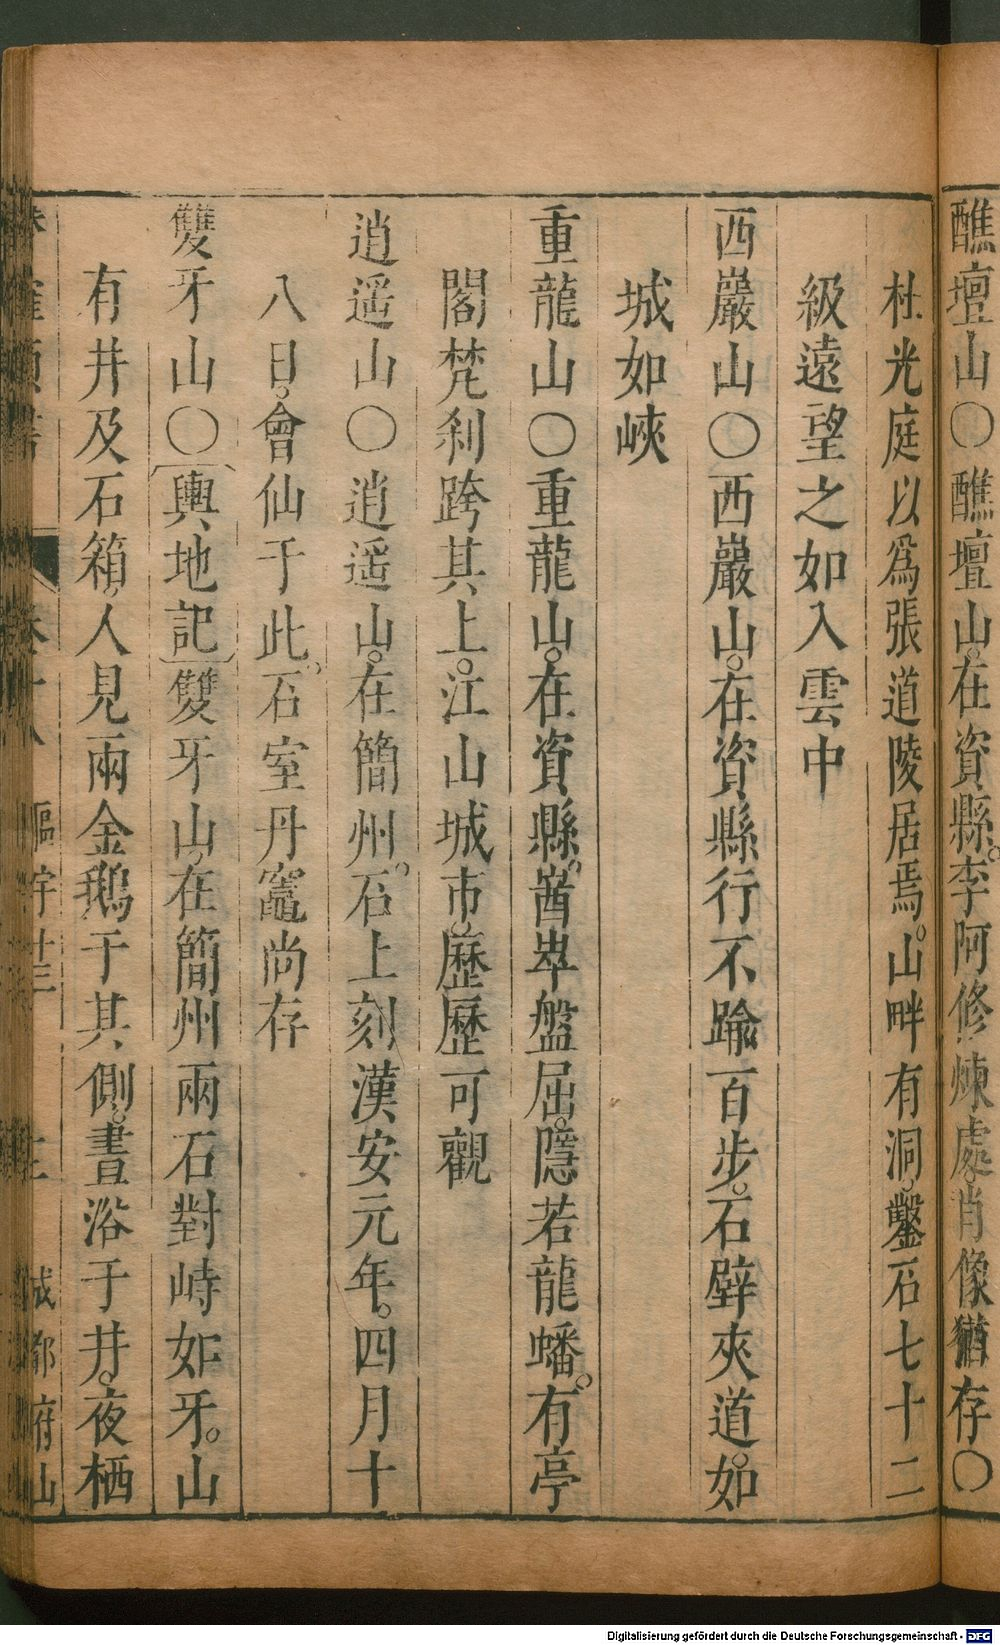 醮壇山〇醮壇山。在資縣。李阿修煉處。肖像猶存〇
杜光庭以爲張道陵居焉。山畔有洞。鑿石七十二
級遠望之如入雲中
西巖山〇西巖山。在資縣行不踰百步。石壁夾道。如
城如峽
重龍山〇重龍山。在資縣。崷崒盤屈。隱若龍蟠。有亭
閣梵刹跨其上。江山城市。歷歷可觀
逍遥山〇逍遥山。在簡州。石上刻漢安元年。四月十
八日。會仙于此。石室丹竈尚存
雙牙山〇[輿地記]雙牙山。在簡州兩石對峙如牙。山
有井及石箱。人見兩金鵝于其側。晝浴于井。夜栖
卷十八 軀宇廿三 成都府山
Digitalisierung gefördert durch die Deutsche Forschungsgemeinschaft - DFG